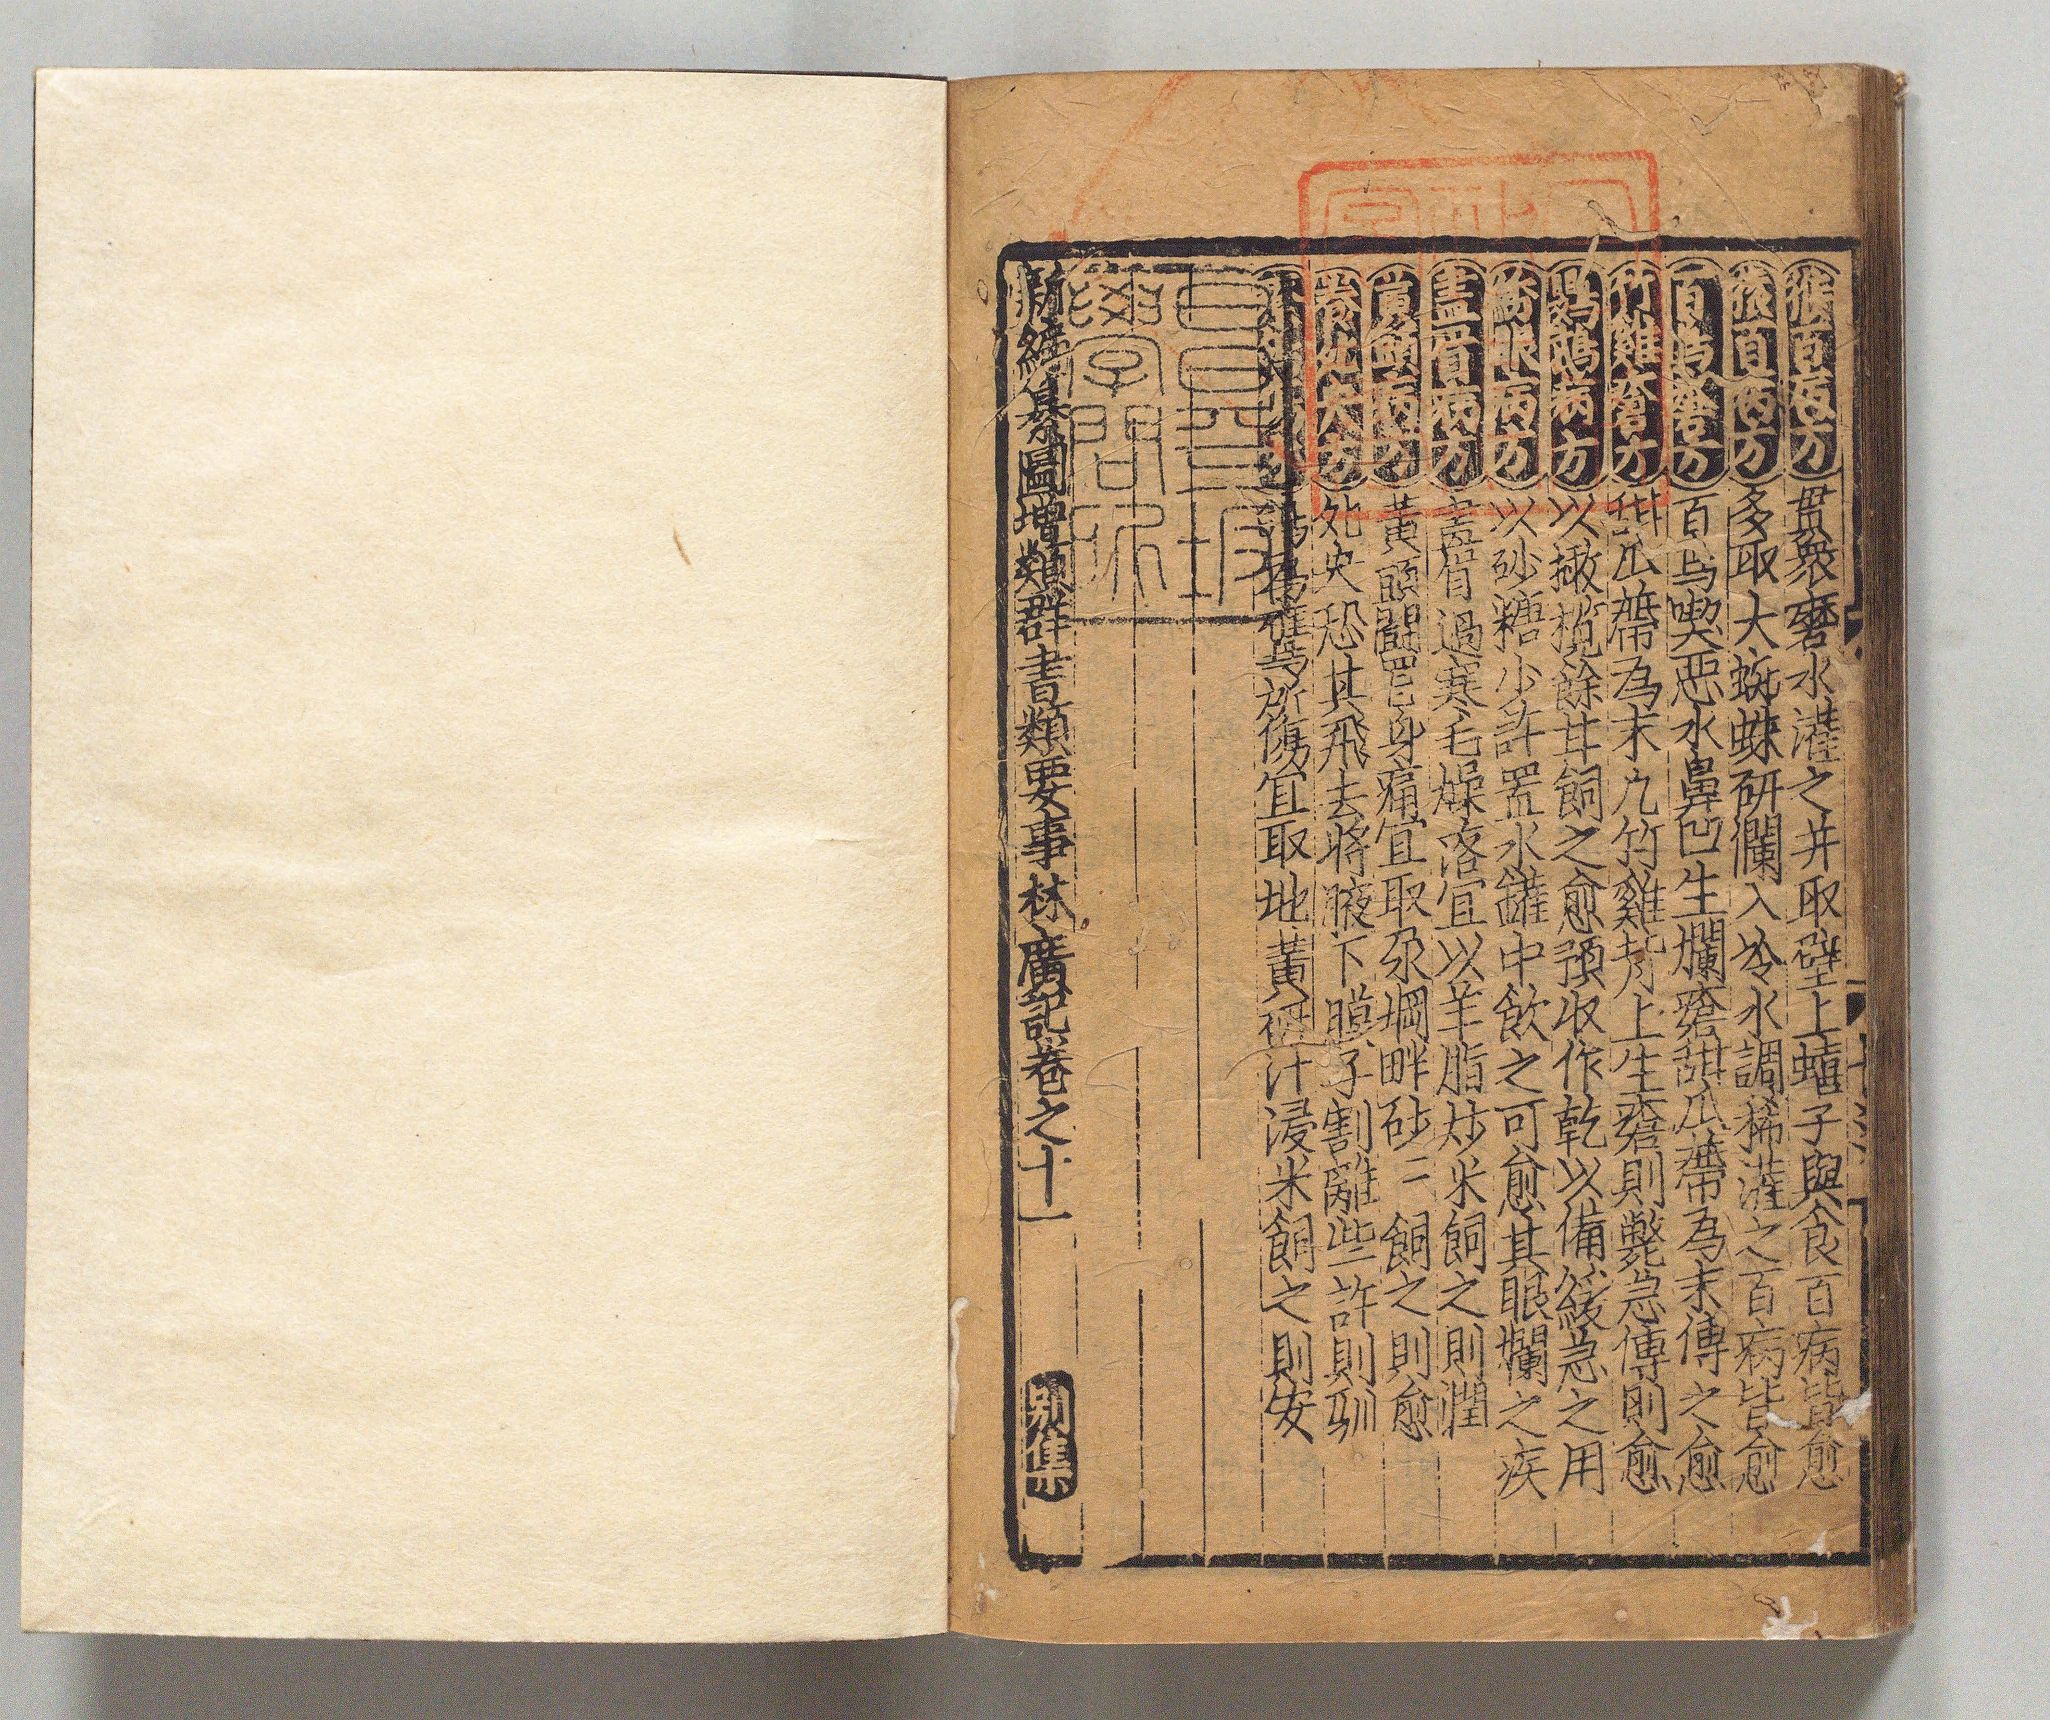 猴百病方 貫衆磨水灌之并取壁上蟢子與食百病皆愈
猿百病方 多取大蜘蛛研爛入冷水調稀灌之百病皆愈
百鳥瘡方 百鳥喫惡水鼻凹生爛瘡甜瓜蔕為末傅之愈
竹雞瘡方 甜瓜蔕為末凢竹雞
上生瘡則斃急傅則愈
鸂鶒病方 以橄欖餘甘飼之愈預收作乾以備緩急之用
眼病方 以砂糖少許置水罐中飲之可愈其眼爛之疾
畫眉病方 畫眉過寒毛燥落宜以羊脂炒米飼之則潤
黃頭病方 黃頭鬪罷身痛宜取尿堈畔砂二飼之則愈
養
方
恐其飛去將腋下膜子割離些許則馴
所傷宜取地黃研汁浸米飼之則安
新編纂圖增類群書類要事林廣記卷之十一
别集